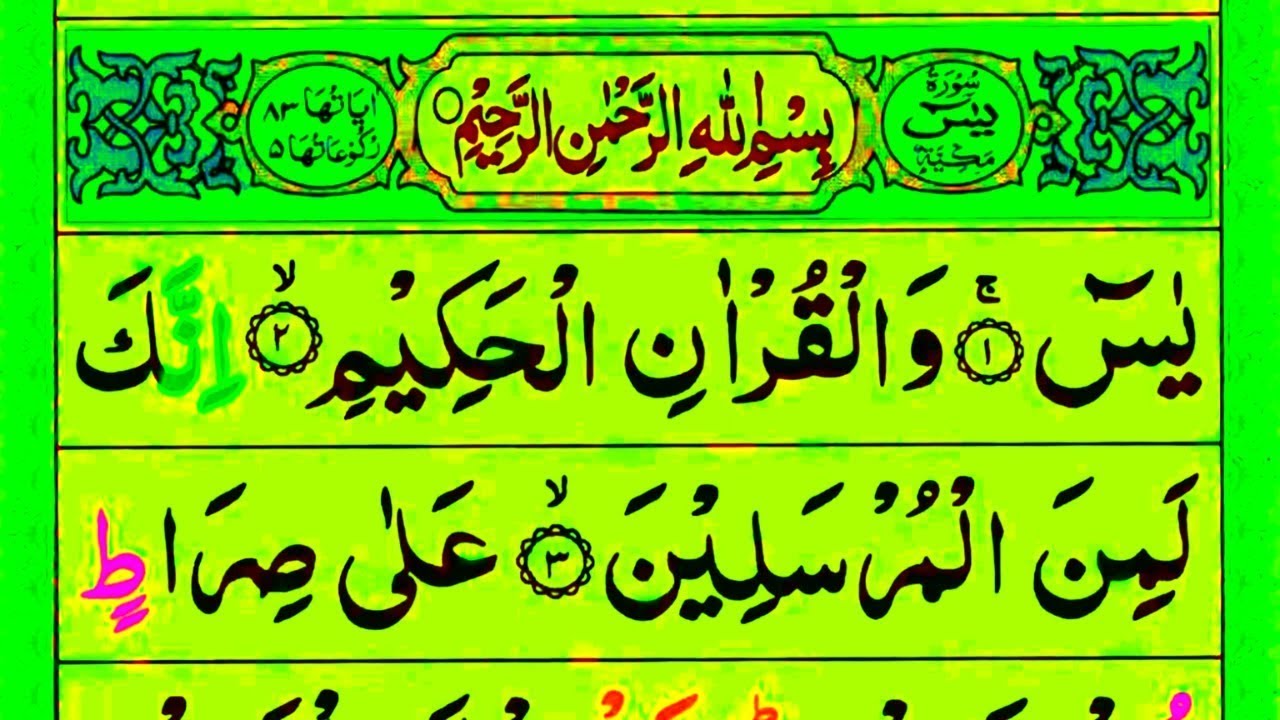 سُوْرَةُ يٰسٓ مَكِّيَّةٌ
بِسْمِ اللّٰهِ الرَّحْمٰنِ الرَّحِيْمِ
اٰيَاتُهَا ٨٣
رُكُوْعَاتُهَا ٥
يٰسٓ ۚ ١ وَالْقُرْاٰنِ الْحَكِيْمِ ۙ ٢ اِنَّكَ
لَمِنَ الْمُرْسَلِيْنَ ۙ ٣ عَلٰى صِرَاطٍ